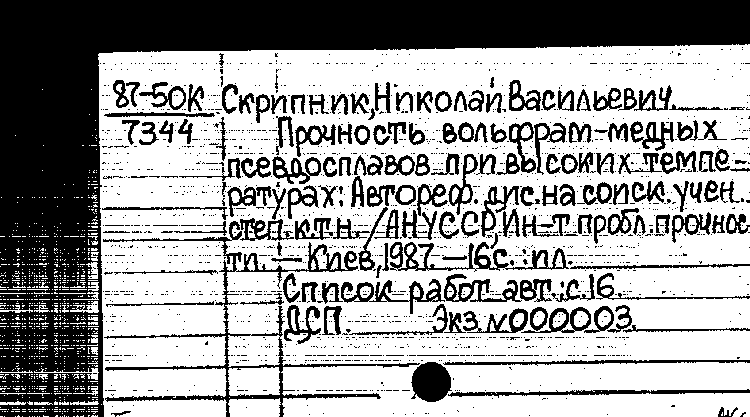 87-50К Скрипник, Николай Васильевич.
7344 Прочность вольфрам-медных
псевдосплавов при высоких темпе-
ратурах: Автореф. дис. на соиск. учен.
степ. к.т.н. /АН УССР, Ин-т пробл. прочнос
ти. — Киев, 1987. — 16с. : ил.
Список работ авт.: с.16.
ДСП. Экз. №000003.